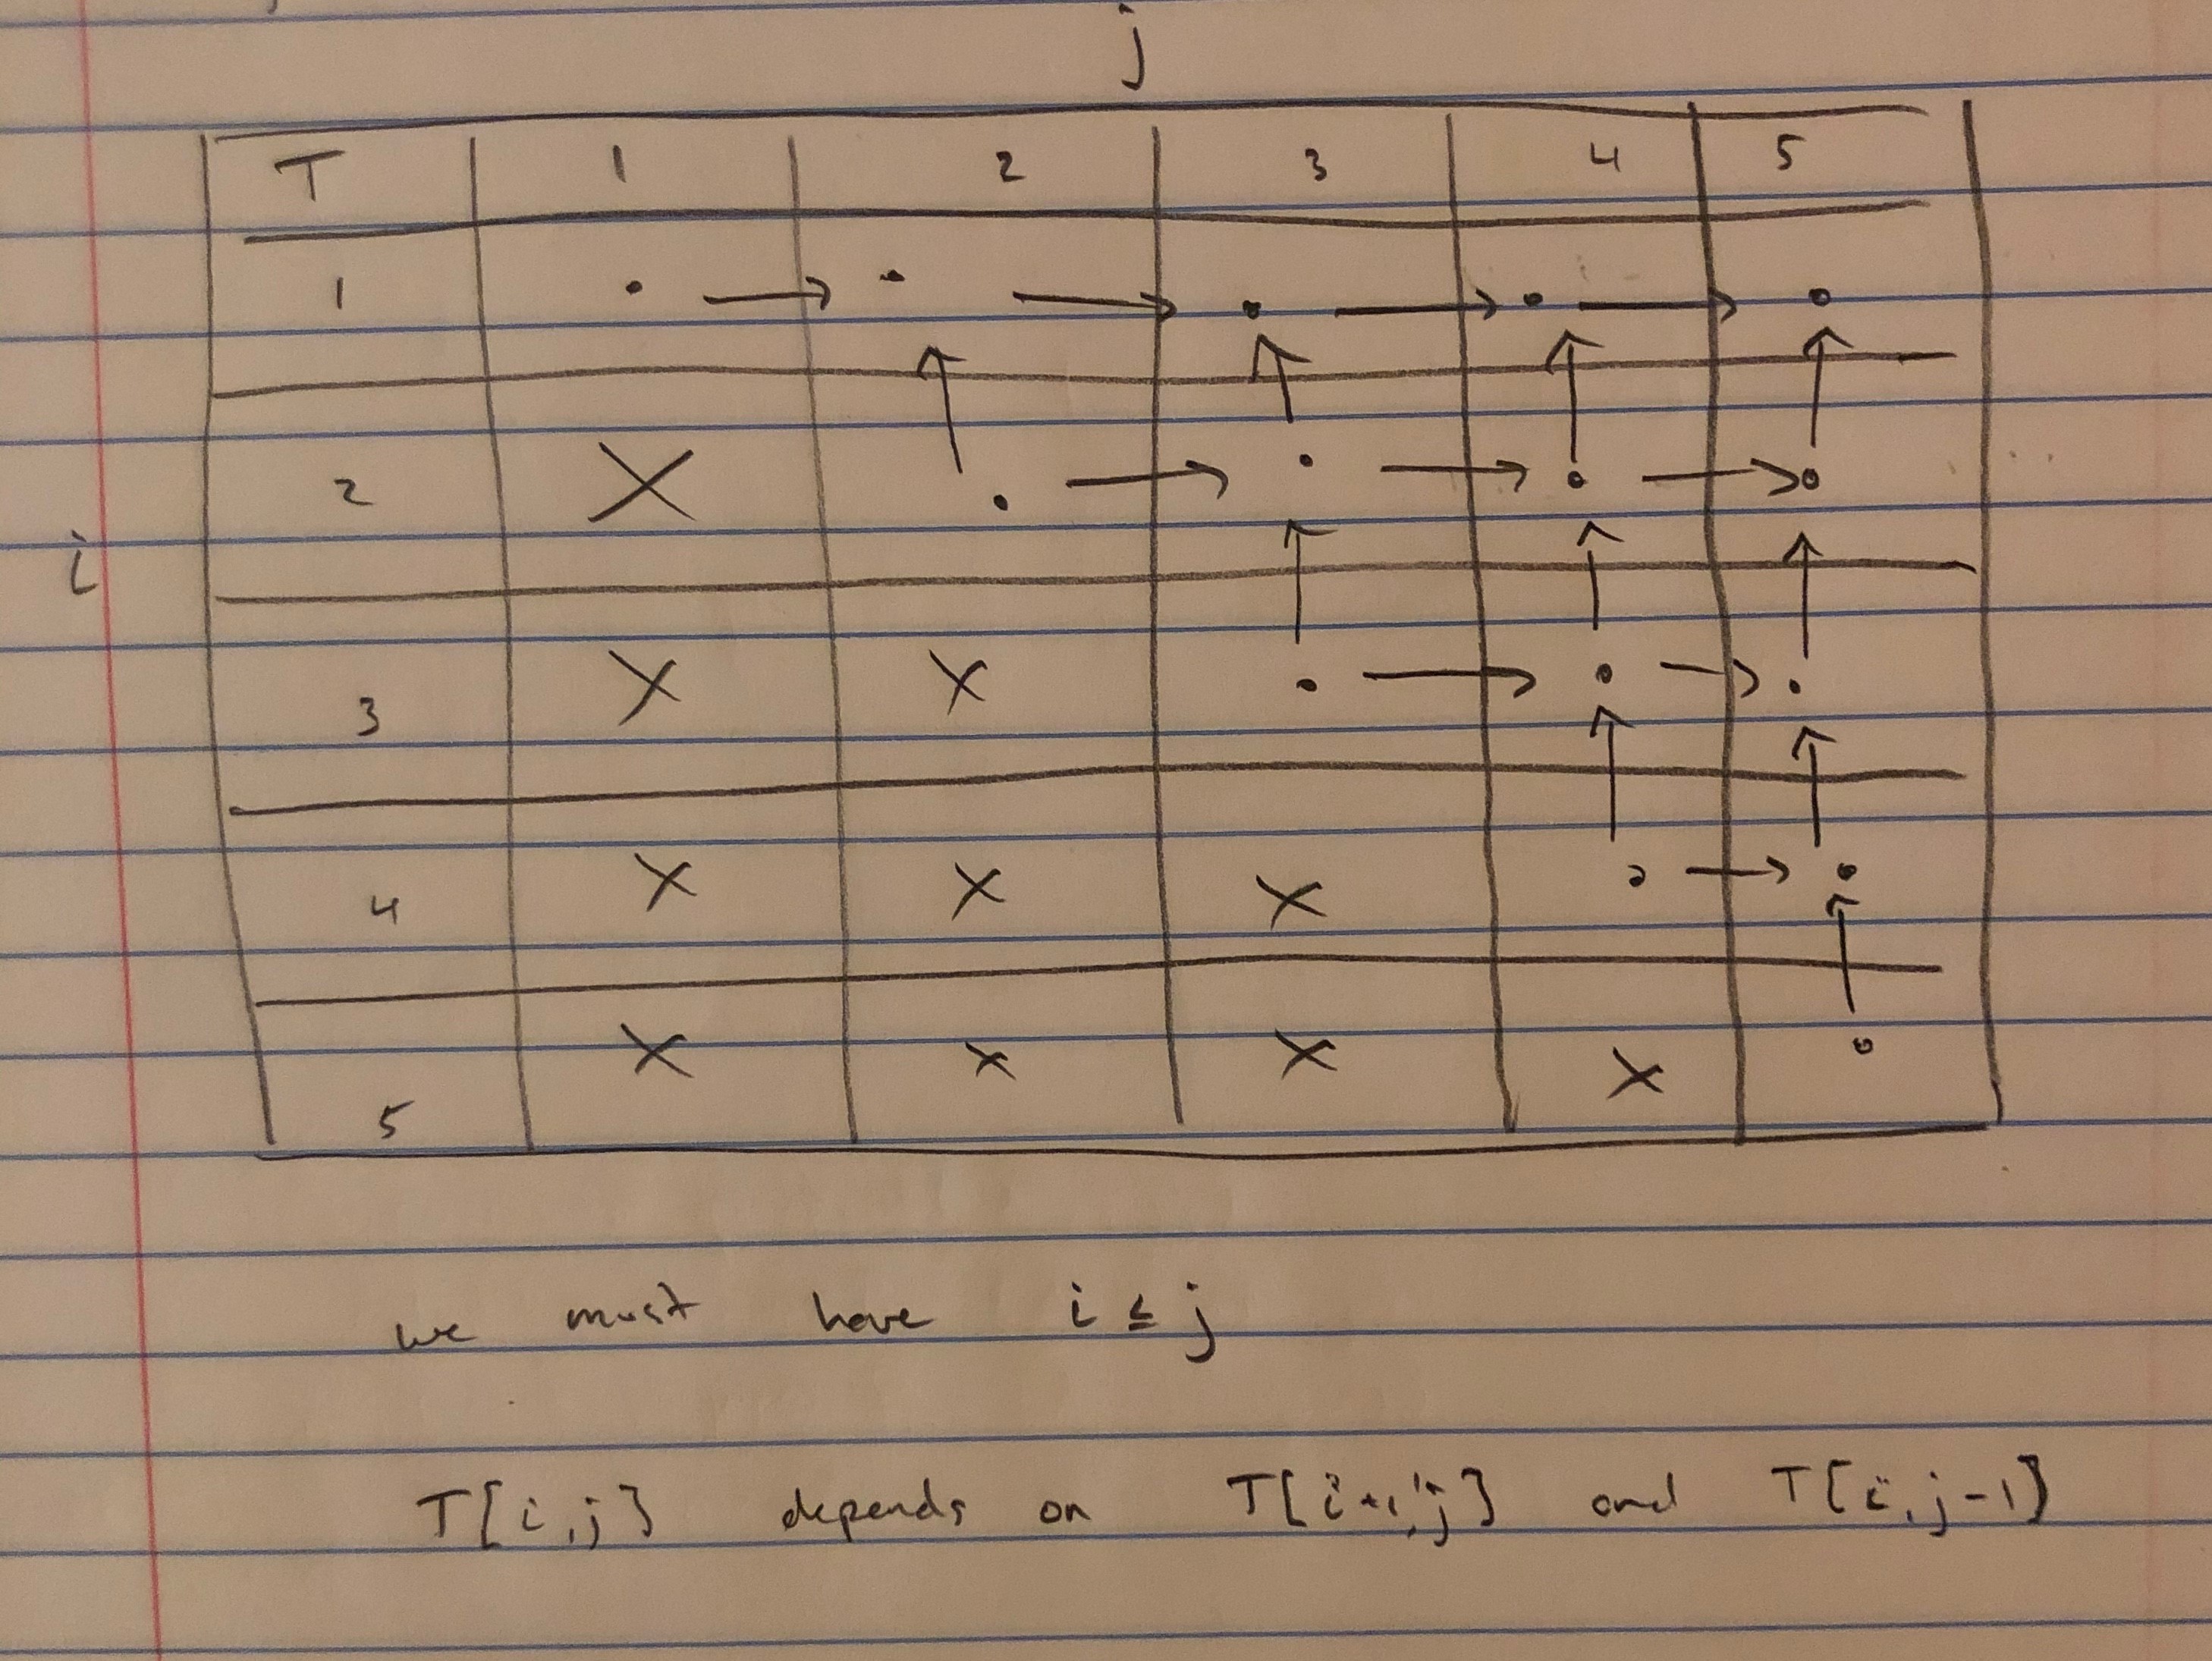 j
T 1 2 3 4 5
1
2 X
i
3 X X
4 X X X
5 X X X X
we must have i ≤ j
T[i,j] depends on T[i+1,j] and T[i,j-1]